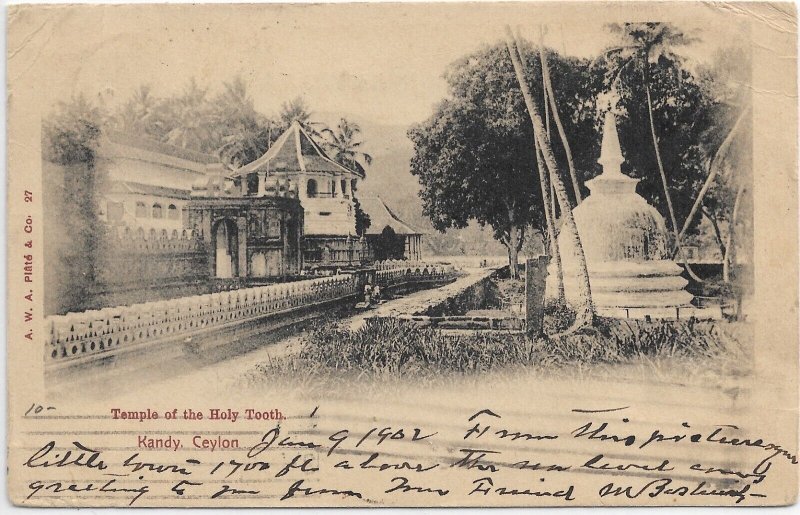 A. W. A. Plâté & Co. 27
10-
Temple of the Holy Tooth.
Kandy, Ceylon
Jan 9 1902 From this picturesque
little town 1700 ft above the sea level
greeting to you from your Friend